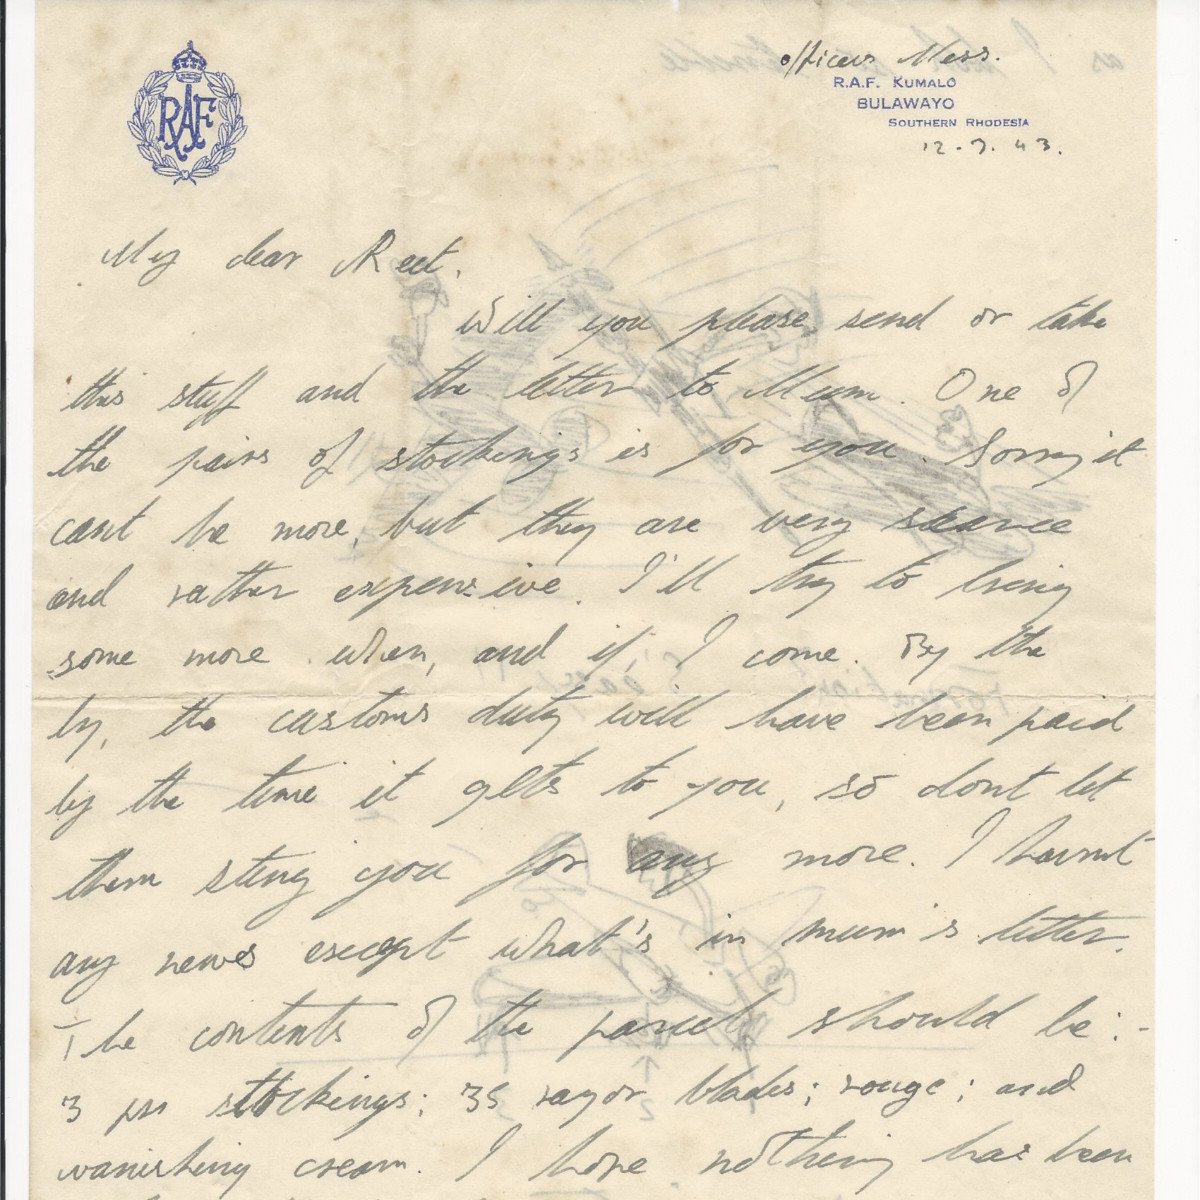 RAF
Officers Mess.
R.A.F. KUMALO
BULAWAYO
SOUTHERN RHODESIA
12.7.43.
My dear Reet,
Will you please send or take
this stuff and the letter to Mum. One of
the pairs of stockings is for you. Sorry it
cant be more, but they are very scarce
and rather expensive. I'll try to bring
some more when, and if, I come. By the
by, the customs duty will have been paid
by the time it gets to you, so dont let
them sting you for any more. I havnt
any news except what's in mum's letter.
The contents of the parcel should be:-
3 prs stockings; 35 razor blades; rouge; and
vanishing cream. I hope nothing has been